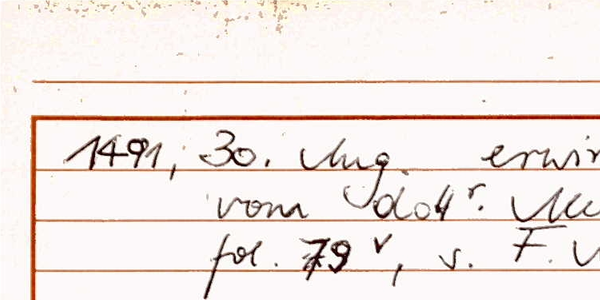 1491, 30. Aug. erwir
vom dokt r.
fol. 79 v, s. F.